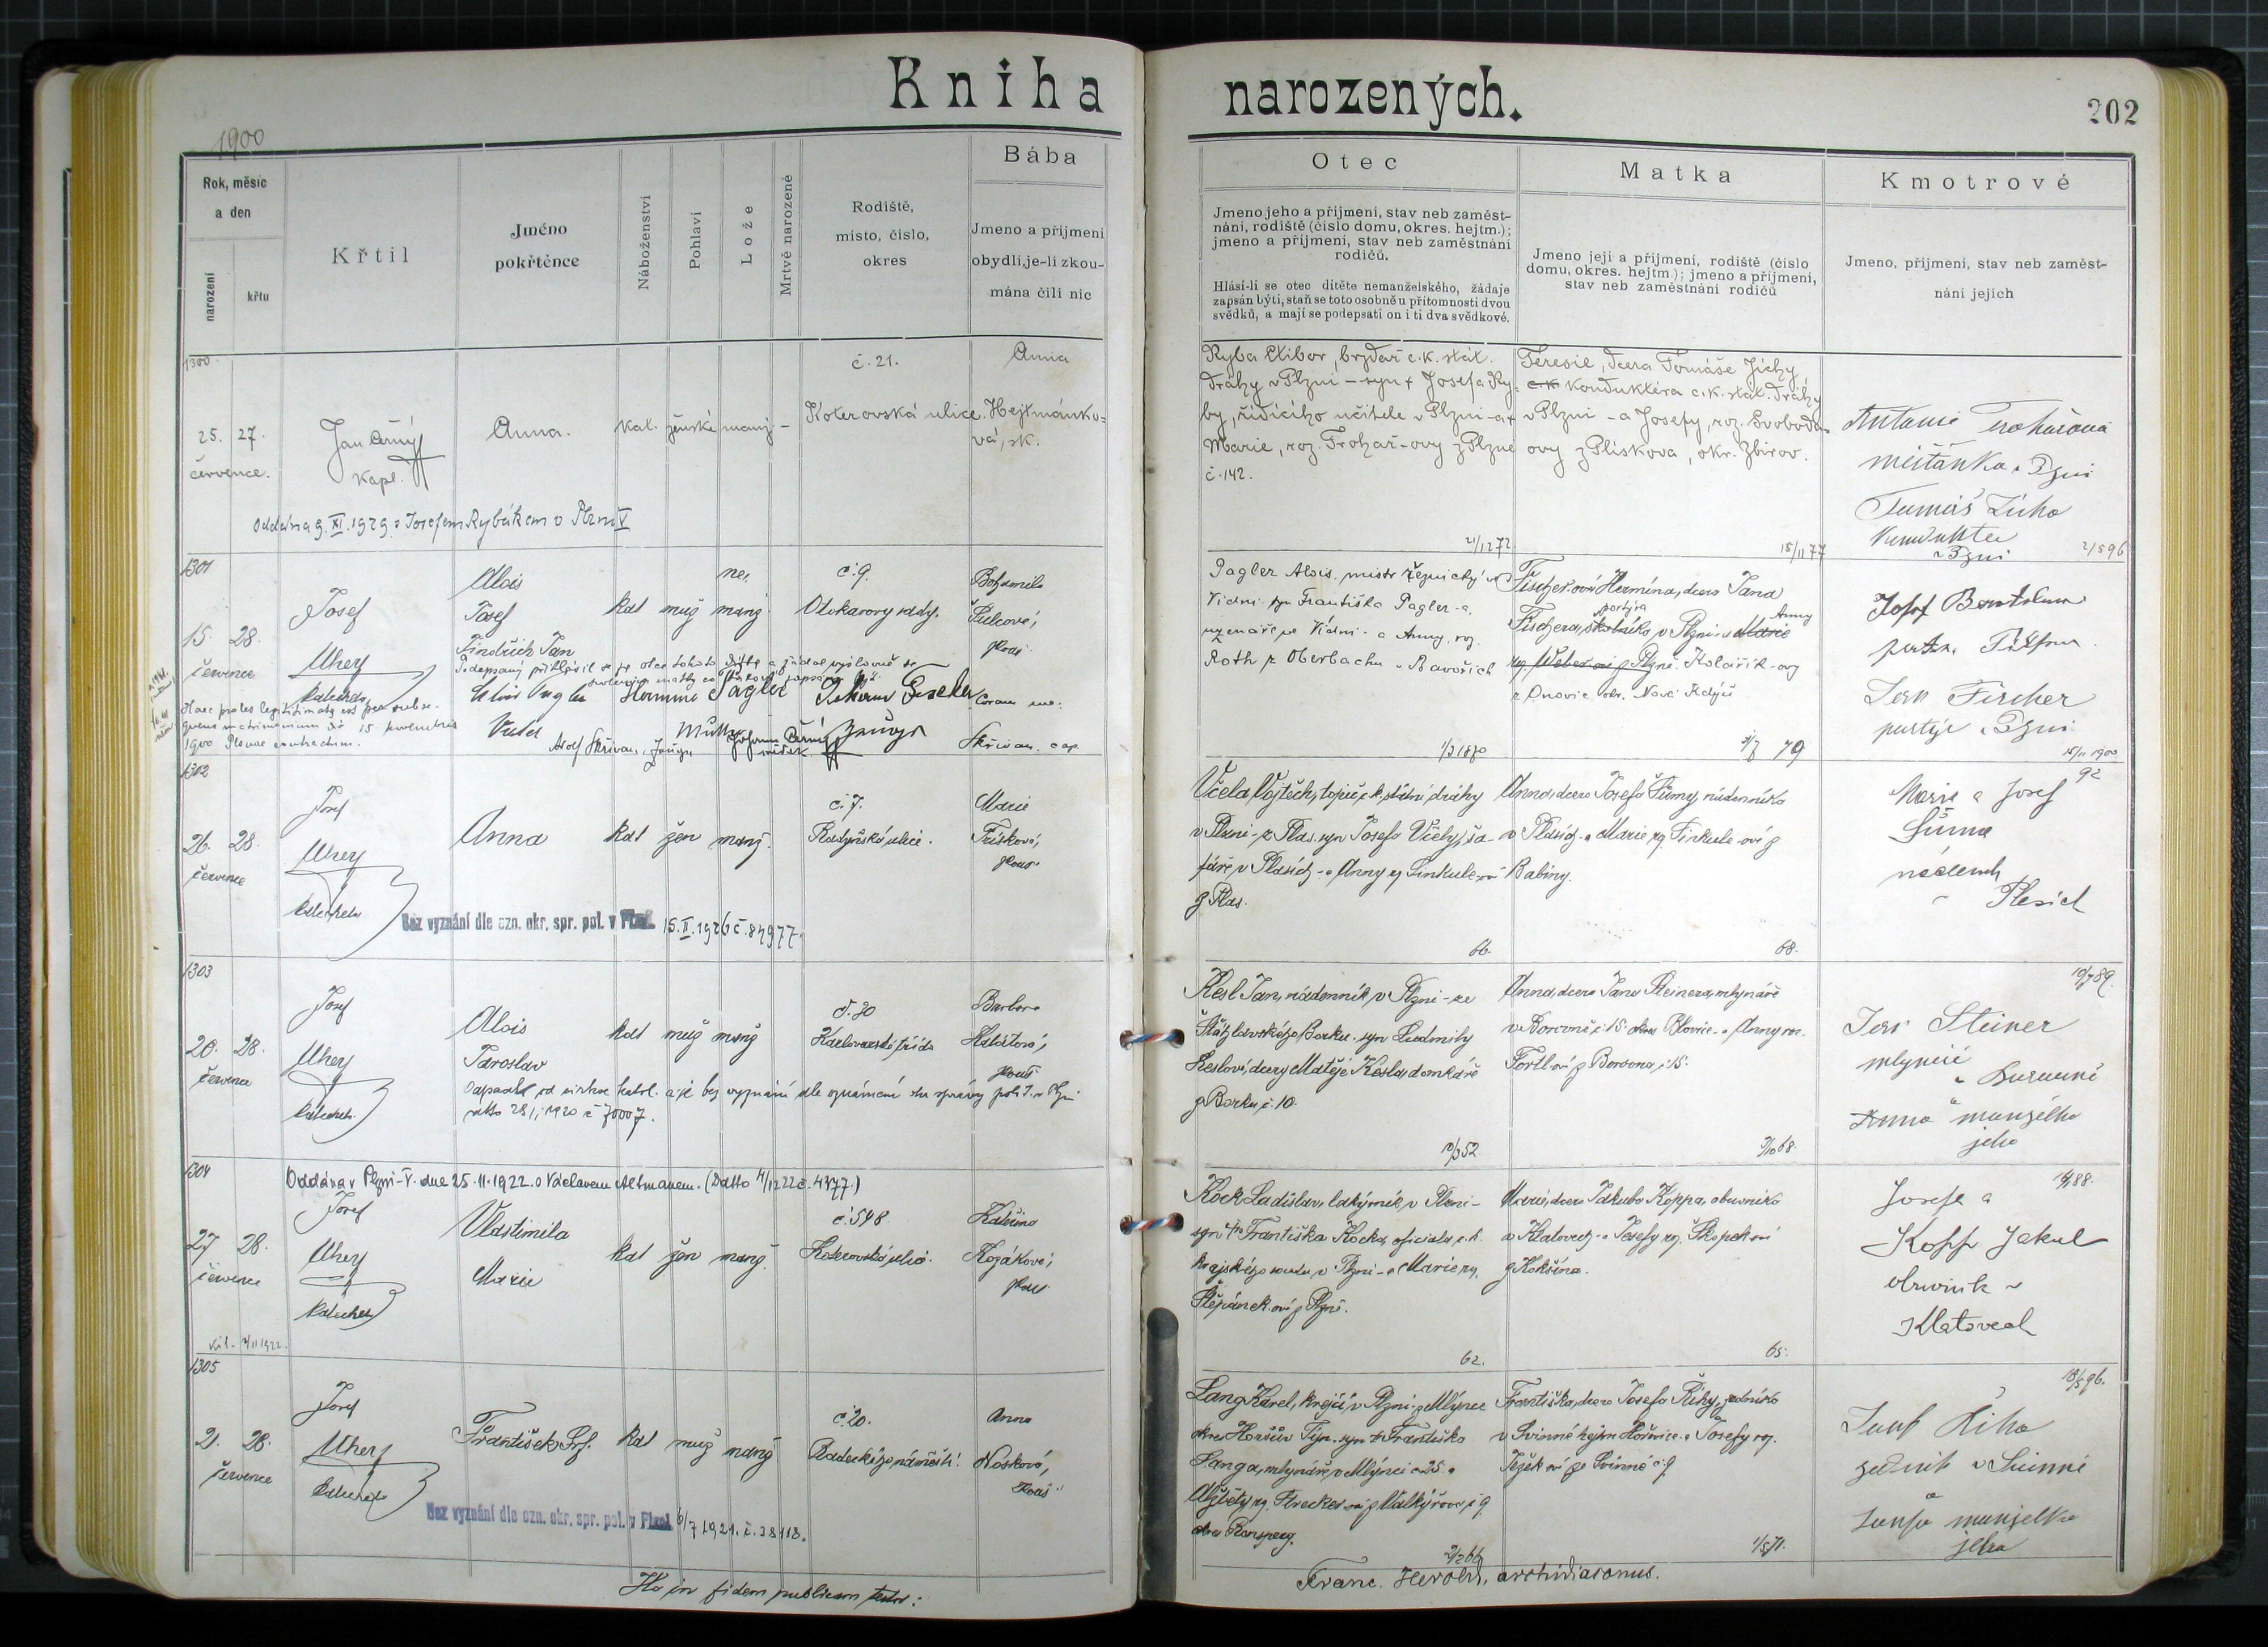 Kniha narozených.
202
1900
Rok, měsíc
a den
narození
křtu
Křtil
Jméno
pokřtěnce
Náboženství
Pohlaví
Lože
Mrtvě narozené
Rodiště,
místo, číslo,
okres
Bába
Jmeno a přijmení
obydlí, je-li zkou-
mána čili nic
Otec
Jmeno jeho a přijmení, stav neb zaměst-
nání, rodiště (číslo domu, okres. hejtm.);
jmeno a přijmení, stav neb zaměstnání
rodičů.
Hlásí-li se otec dítěte nemanželského, žádaje
zapsán býti, staň se toto osobně u přítomnosti dvou
svědků, a mají se podepsati on i ti dva svědkové.
Matka
Jmeno její a přijmení, rodiště (číslo
domu, okres. hejtm.); jmeno a přijmení,
stav neb zaměstnání rodičů
Kmotrové
Jmeno, přijmení, stav neb zaměst-
nání jejich
1300
25. 27.
července.
Jan Černý
Kapl.
Anna.
kat. ženské manž. -
č. 21.
Koterovská ulice.
Anna
Hejtmánko-
vá, zk.
Oddána 9. XI. 1929 s Josefem Rybákem v Plzni V
Ryba Ctibor, brzdař c. k. stát.
dráhy v Plzni - syn + Josefa Ry-
by, řídícího učitele v Plzni - a +
Marie, roz. Trohař-ovy z Plzně
č. 142.
21/12 72
Teresie, dcera Tomáše Jíchy,
c. k. konduktéra c. k. stát. dráhy
v Plzni - a Josefy, roz. Svobod-
ovy z Plískova, okr. Zbirov.
15/11 77
Antonie Trohařova
měšťanka v Plzni
Tomáš Jícha
v Plzni
2/8 96
1301
15. 28.
července
Josef
Uhery
katecheta
Alois
Josef
Jindřich Jan
kat muž manž.
ne.
č. 9.
Otokarovy sady.
Bohumila
Šulcová,
zkouš.
Podepsaný přihlásil se za otce tohoto dítěte a žádal výslovně se
svolením matky za takového zapsán býti
Alois Pagler Hermine Pagler
Vater Mutter
Coram me:
Adolf Skřivan
Johann Černý
svědek
Skřivan. cap.
Haec proles legitimata est per subse-
quens matrimonium die 15 novembris
1900 Plsnae contractum.
Pagler Alois, mistr řeznický ve
Vídni - syn Františka Pagler-a,
uzenáře ve Vídni - a Anny, roz.
Roth z Oberbachu v Bavořích
1/3 1870
Fischer-ová Hermína, dcera Jana
Fischera, školníka v Plzni - a Marie
portýra
Anny
roz. Weber-ové z Plzně. Kolářík-ovy
79
Josef
Jan Fischer
portýr v Plzni
15/11 1900
1302
26. 28.
července
Josef
Uhery
katecheta
Anna
kat žen manž.
č. 7.
Radyňská ulice.
Marie
Frísková,
zkouš.
Bez vyznání dle ozn. okr. spr. pol. v Plzni. 15. II. 1926 č. 84977.
Včela Vojtěch, topič c. k. státní dráhy
v Plzni - z Plas, syn Josefa Včely, ša-
fáře v Plasích - a Anny roz. Sinkule-ové
z Plas.
66.
Anna, dcera Josefa Šůmy, nádenníka
v Plasích - a Marie roz. Sinkule-ové z
Babiny.
68.
92
Marie a Josef
Šůma
nádeník
v Plasích
1303
20. 28.
července
Josef
Uhery
katecheta
Alois
Jaroslav
kat muž manž
č. 20
Karlovarská třída
Barbora
zkouš.
Odpadl od církve katol. a je bez vyznání dle oznámení okr. správy polit. v Plzni
datto 28/1 1920 č 70007.
Kesl Jan, nádenník v Plzni - ze
Štáhlavského Borku - syn Ludmily
Keslové, dcery Matěje Kesla, domkáře
z Borku, č. 10.
10/3 52
Anna, dcera Jana Steinera, mlynáře
v Borovně č. 15. okres Blovice - a Anny roz.
Fortl-ové z Borovna, č. 15.
9/10 68.
10/7 89.
Jan Steiner
mlynář
v Borovně
Anna manželka
jeho
1304
27 28.
července
Oddána v Plzni-V. dne 25. 11. 1922. s Václavem Altmanem. (Datto 4/12 22 č. 4377.)
Josef
Uhery
katecheta
Vlastimila
Marie
kat žen manž.
č. 548
Koterovská ulice.
Kateřina
Kozáková,
zkouš.
Kock Ladislav, lakýrník v Plzni -
syn Františka Kocka, oficiala c. k.
krajského soudu v Plzni - a Marie roz.
Štěpánek-ové z Plzně.
62.
Marie, dcera Jakuba Koppa, obuvníka
v Klatovech - a Josefy roz. Škopek-ové
z Kokšína.
65.
88.
Josefa a
Kopp Jakub
obuvník v
Klatovech
1305
21. 28.
července
Josef
Uhery
katecheta
František Jos.
kat muž manž
č. 20.
Radeckého náměstí.
Anna
Nosková,
zkouš.
Bez vyznání dle ozn. okr. spr. pol. v Plzni 6/7 1921. č. 38118.
Lang Karel, krejčí v Plzni - z Mlýnce
okres Horšův Týn - syn Františka
Langa, mlynáře v Mlýnci č. 25. a
Alžběty roz. Strecker-ové z Valkýřova, č. 9
okres Ronsperg.
2/2 66
Františka, dcera Josefa Říhy, zedníka
v Svinné hejtm. Hořovice - a Josefy roz.
Ježek-ové ze Svinné č. 9
1/5 71.
18/5 96.
Josef Říha
zedník v Svinné
a
Josefa manželka
jeho
Ita in fidem publicam testor:
Franc. Herold, archidiaconus.